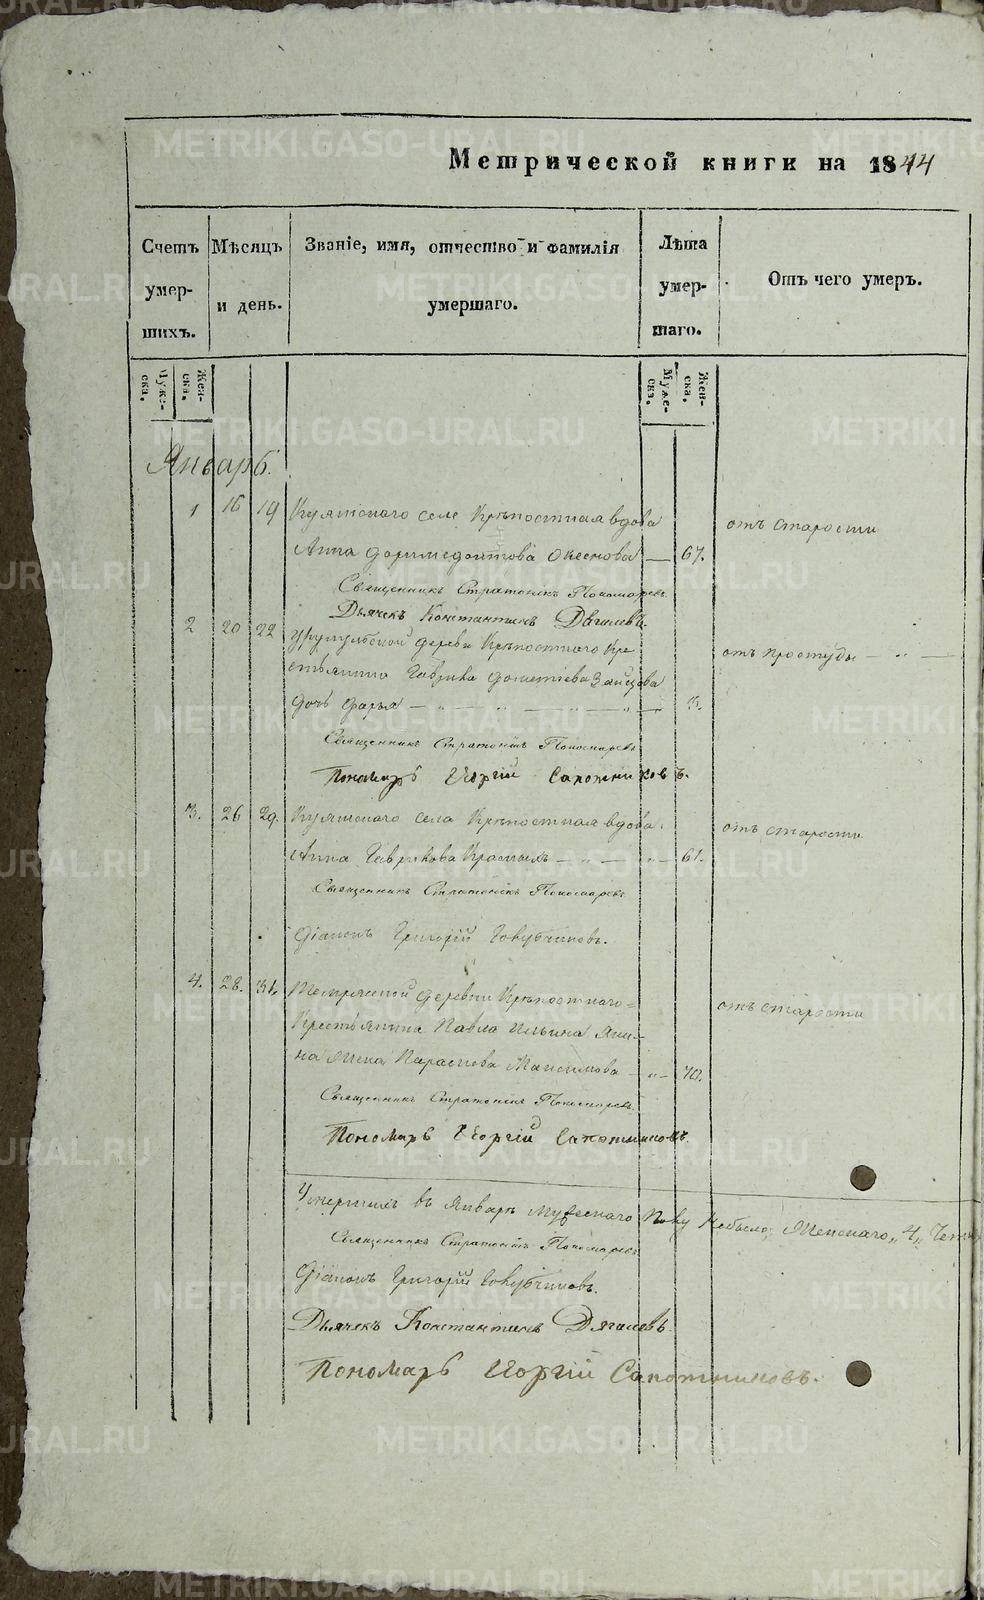 Метрической книги на 1844
Счетъ умер-шихъ.
Мѣсяцъ и день.
Званіе, имя, отчество и фамилія умершаго.
Лѣта умер-шаго.
Отъ чего умеръ.
Муже-ска.
Жен-ска.
Муже-ска.
Жен-ска.
Январь.
1 16 19 село Крѣпостная вдова
отъ старости
Анна 67.
Священникъ Стратоникъ Пономаревъ
Дьячекъ Константинъ Дягилевъ.
2 20 22 деревни Крѣпостного Кре-
отъ простуды
стьянина Гаврила Зайцова
дочь Дарья 3.
Священникъ Стратоникъ Пономаревъ
Пономарь Георгій Сапожниковъ.
3. 26 29. села Крѣпостная вдова
отъ старости
Анна Гаврилова 61.
Священникъ Стратоникъ Пономаревъ
Діаконъ Григорій
4. 28. 31. деревни Крѣпостного
отъ старости
Крестьянина Павла Ильина
на жена Параскева Максимова 70.
Священникъ Стратоникъ Пономаревъ
Пономарь Георгій Сапожниковъ.
Умершихъ въ Январѣ Мужескаго полу небыло, Женскаго „4„
Священникъ Стратоникъ Пономаревъ
Діаконъ Григорій
Дьячекъ Константинъ Дягилевъ
Пономарь Георгій Сапожниковъ.
METRIKI.GASO-URAL.RU